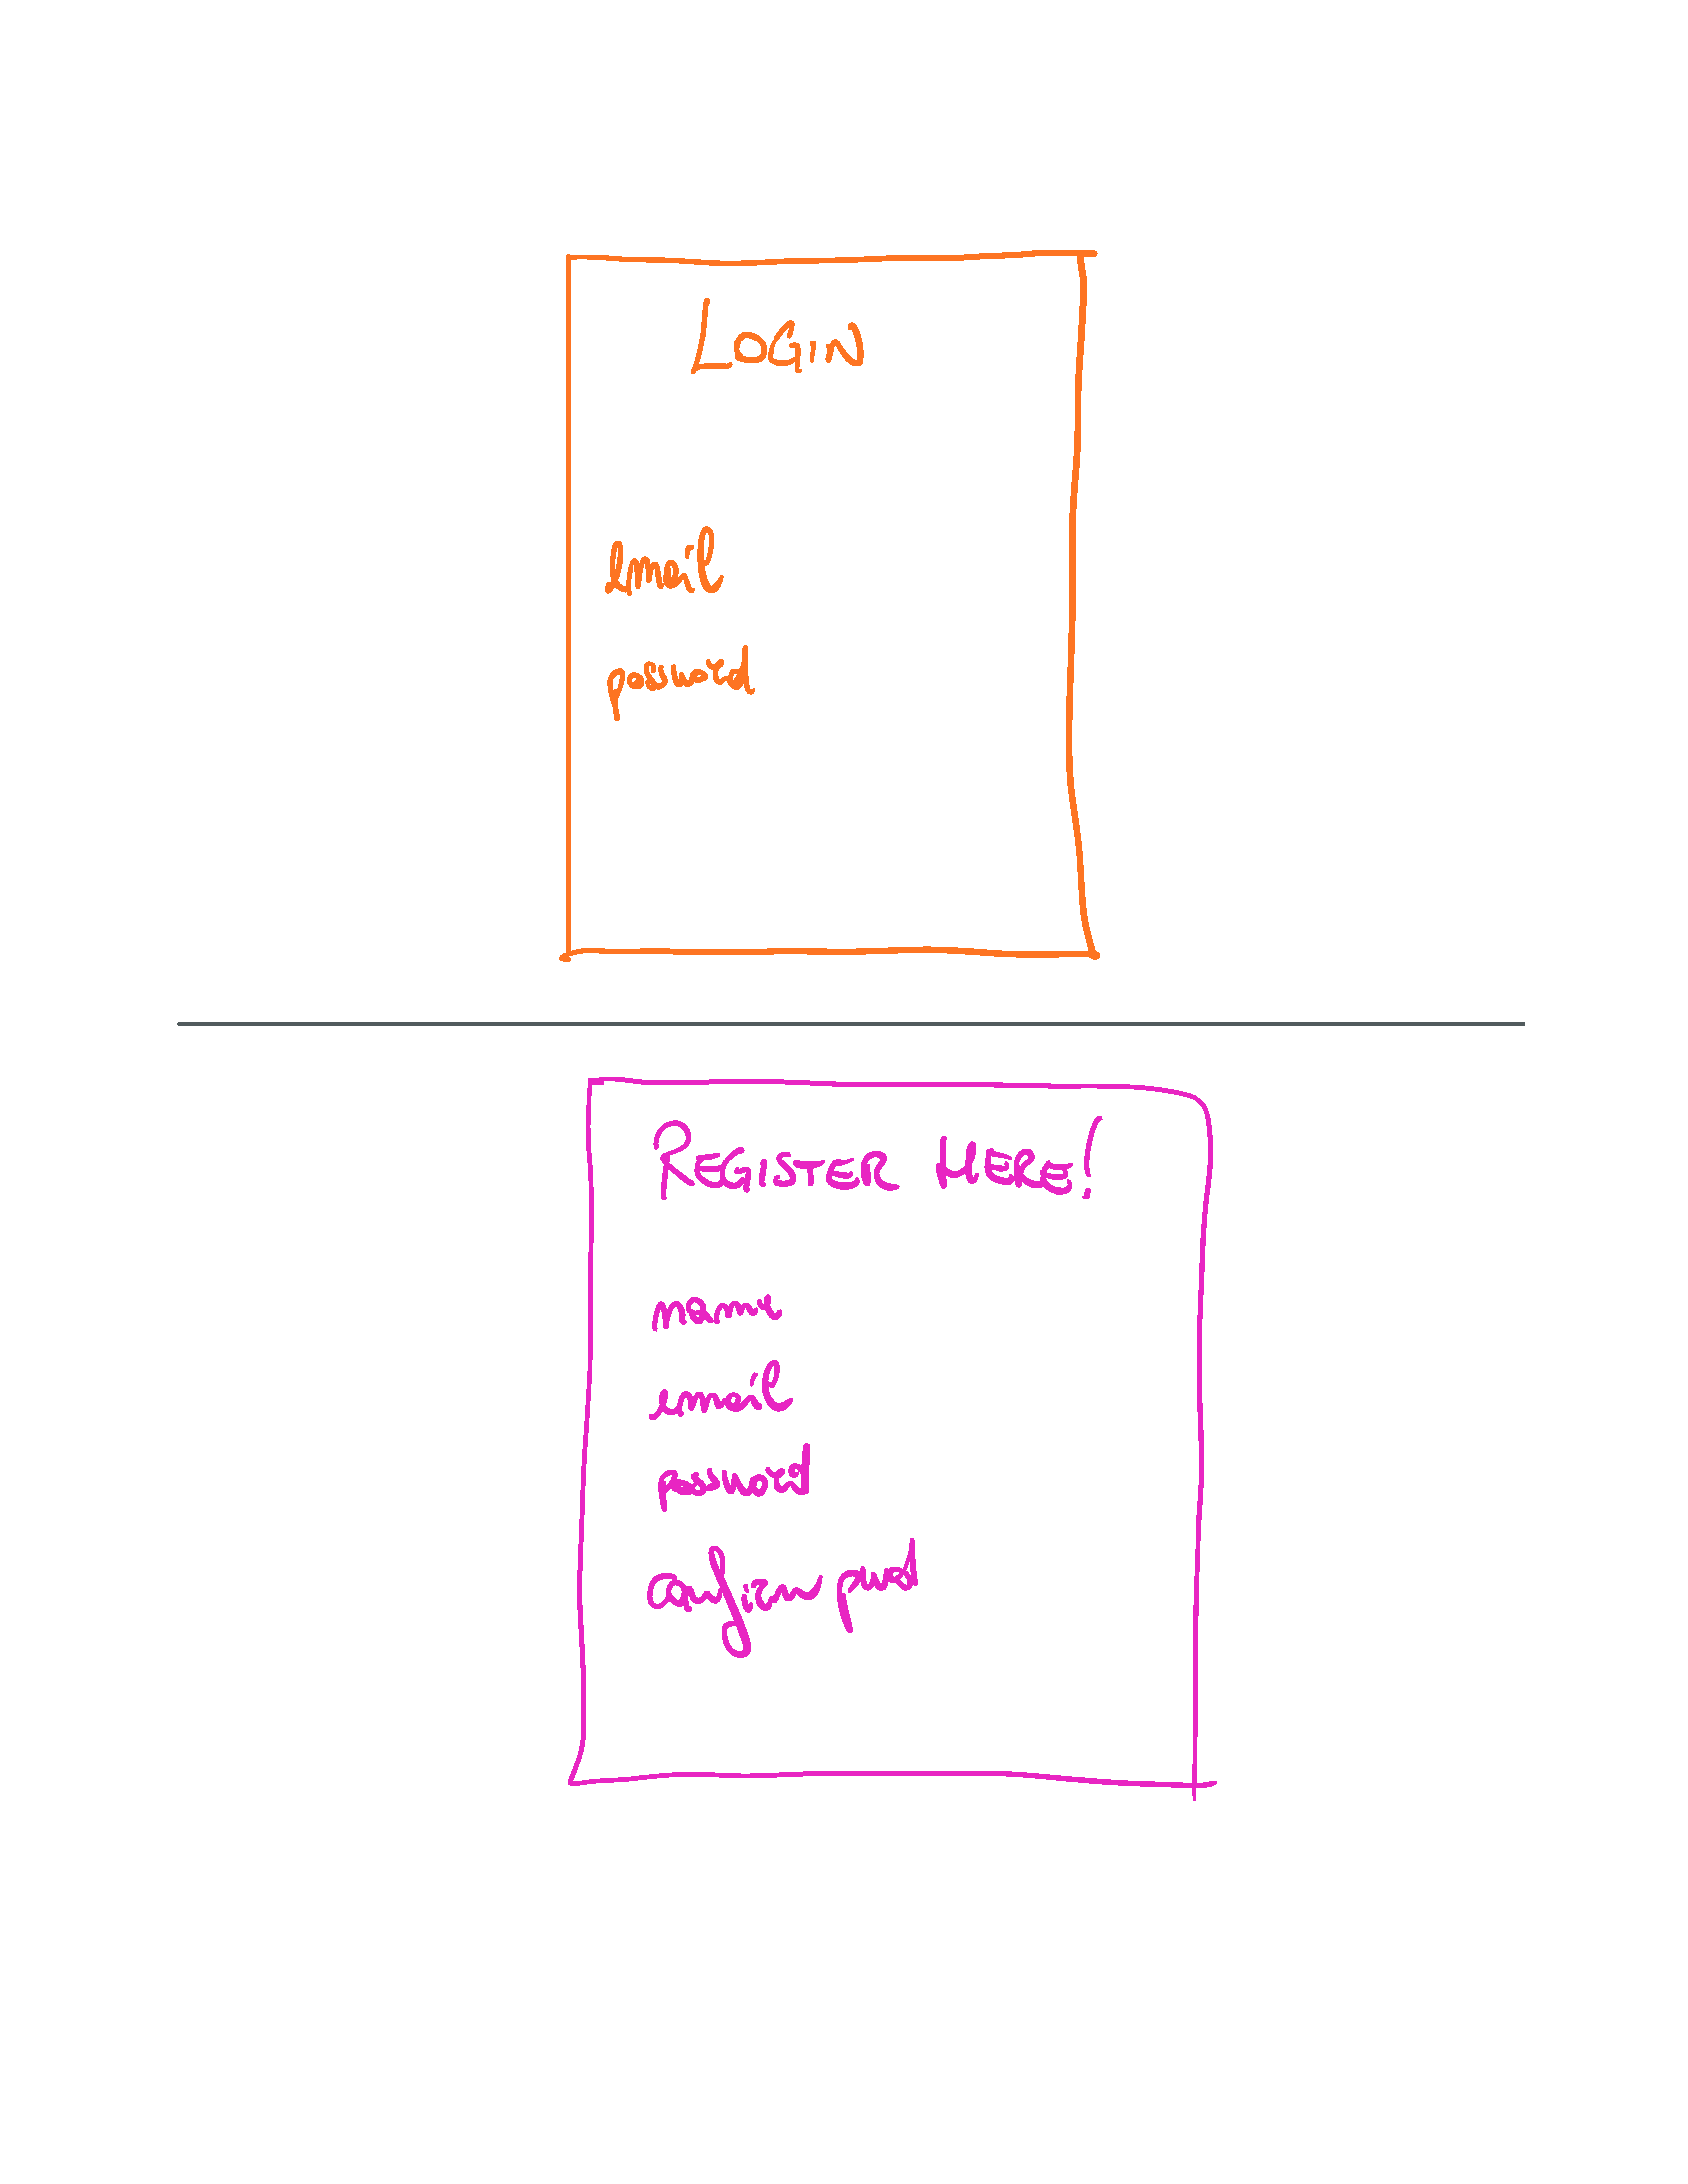 LOGIN
email
password
REGISTER HERE!
name
email
password
confirm pwd